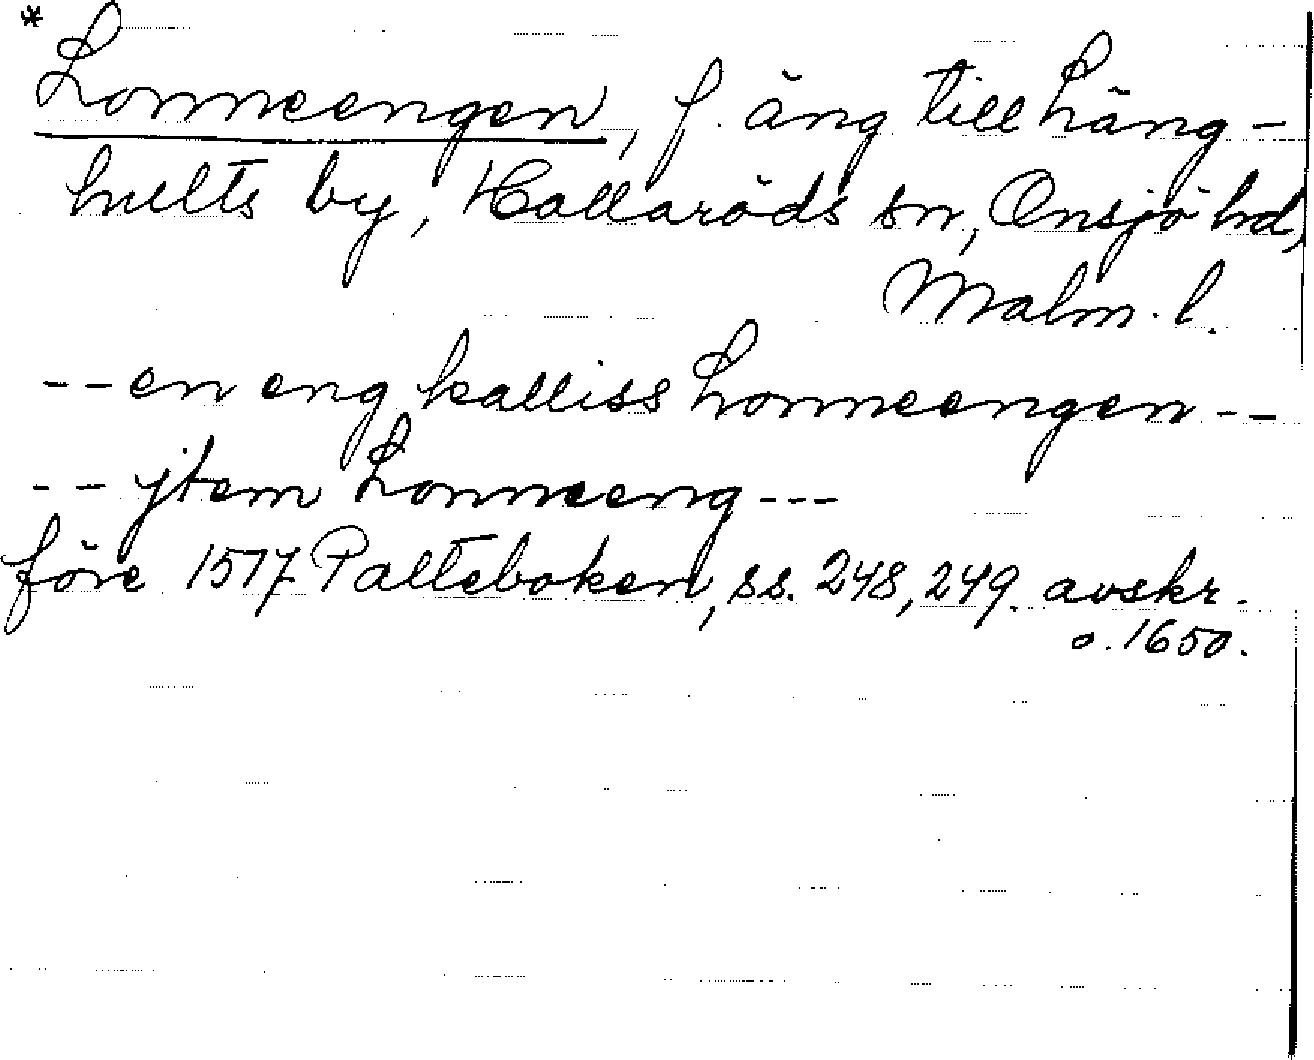 *Lonneengen, f. äng till Läng-
hults by, Hallaröds sn, Onsjö hd,
Malm. l.
-- en eng kalliss Lonneengen --
-- jtem Lonneeng ---
före 1517 Palteboken, ss. 248, 249. avskr.
o. 1650.